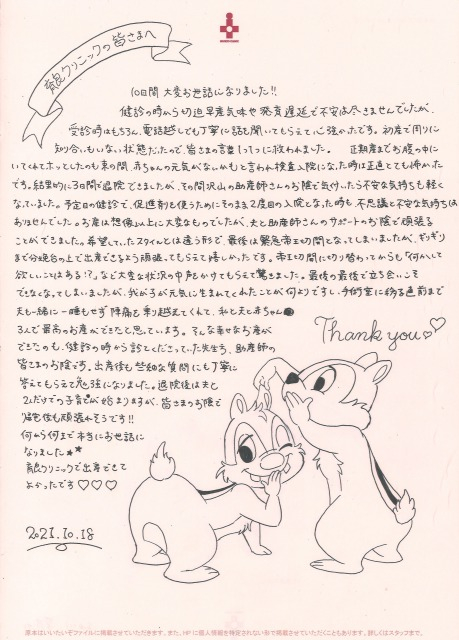 クリニックの皆さまへ
10日間 大変お世話になりました!!
健診の時から切迫早産気味や発育遅延で不安は尽きませんでしたが、
受診時はもちろん、電話越しでも丁寧に話を聞いてもらえて心強かったです。初産で周りに
知り合いもいない状態だったので、皆さまの言葉1つ1つに救われました。 正期産までお腹の中に
いてくれてホッとしたのも束の間、赤ちゃんの元気がないかもと言われ検査入院になった時は正直とても怖かった
です。結果的に3日間で退院できましたが、その間沢山の助産師さんのお陰で気付いたら不安な気持ちも軽く
なっていました。予定日の健診で、促進剤を使うためにそのまま2度目の入院となった時も、不思議と不安な気持ちは
ありませんでした。お産は想像以上に大変なものでしたが、夫と助産師さんのサポートのお陰で頑張る
ことができました。希望していたスタイルとは違う形で、最後は緊急帝王切開となってしまいましたが、ギリギリ
まで分娩台の上で出産できるよう頑張ってもらえて嬉しかったです。帝王切開に切り替わってからも「何かして
欲しいことはある!?」など大変な状況の中声かけてもらえて驚きました。最後の最後で立ち会いこそ
できなくなってしまいましたが、我が子が元気に生まれてくれたことが何よりですし、手術室に移る直前まで
夫も一緒に一睡もせず陣痛を乗り越えてくれて、私と夫と赤ちゃん
3人で最高のお産ができたと思っています。そんな幸せなお産が
できたのも、健診の時から診てくださっていた先生方、助産師の
皆さまのお陰です。出産後も些細な質問にも丁寧に
答えてもらえて勉強になりました。退院後は夫と
2人だけでの子育てが始まりますが、皆さまのお陰で
今後も頑張れそうです!!
何から何まで本当にお世話に
なりました★★
クリニックで出産できて
よかったです♡♡♡
Thank you♡♡
2021.10.18
原本はいいたいぞファイルに掲載させていただきます。また、HPに個人情報を特定されない形で掲載させていただくこともあります。詳しくはスタッフまで。